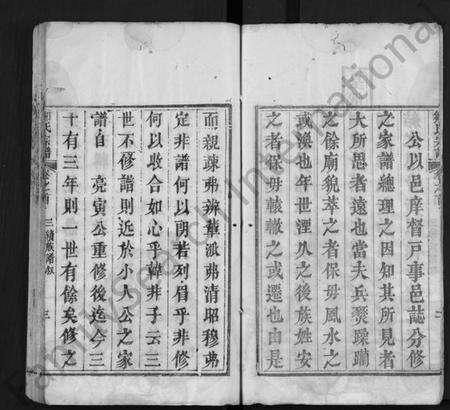 公以邑庠督戸事邑誌分修
之家譜總理之因知其所見者
大所思者遠也當夫兵燹蹂躪
之餘廟貌萃之者保毋風水之
或渙也年世湮久之後族姓安
之者保毋轇轕之或遷也由是
而親疎弗辨葦派弗清昭穆弗
定非譜何以朗若列眉乎非修
何以收合如心乎韓非子云三
世不修譜則近於小人公之家
譜自 亮寅公重修後迄今三
十有三年則一世有餘矣修之
氏宗譜
卷之首
三續族譜叙
三
FamilySearch International